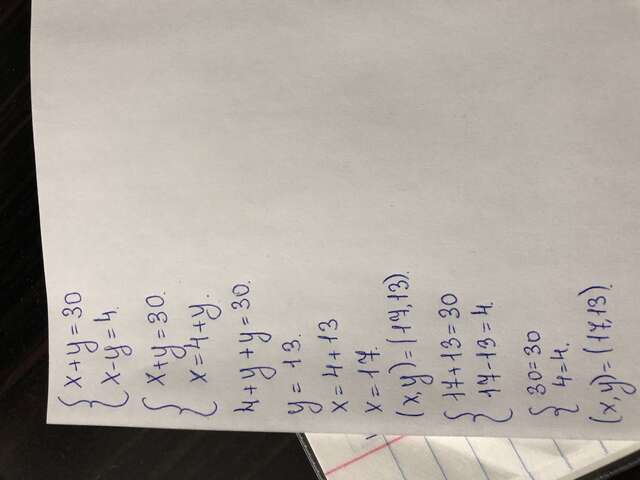 x+y=30
x-y=4.
x+y=30.
x=4+y.
4+y+y=30.
y=13.
x=4+13
x=17.
(x,y)=(17,13).
17+13=30
17-13=4.
30=30
4=4.
(x,y)=(17,13).